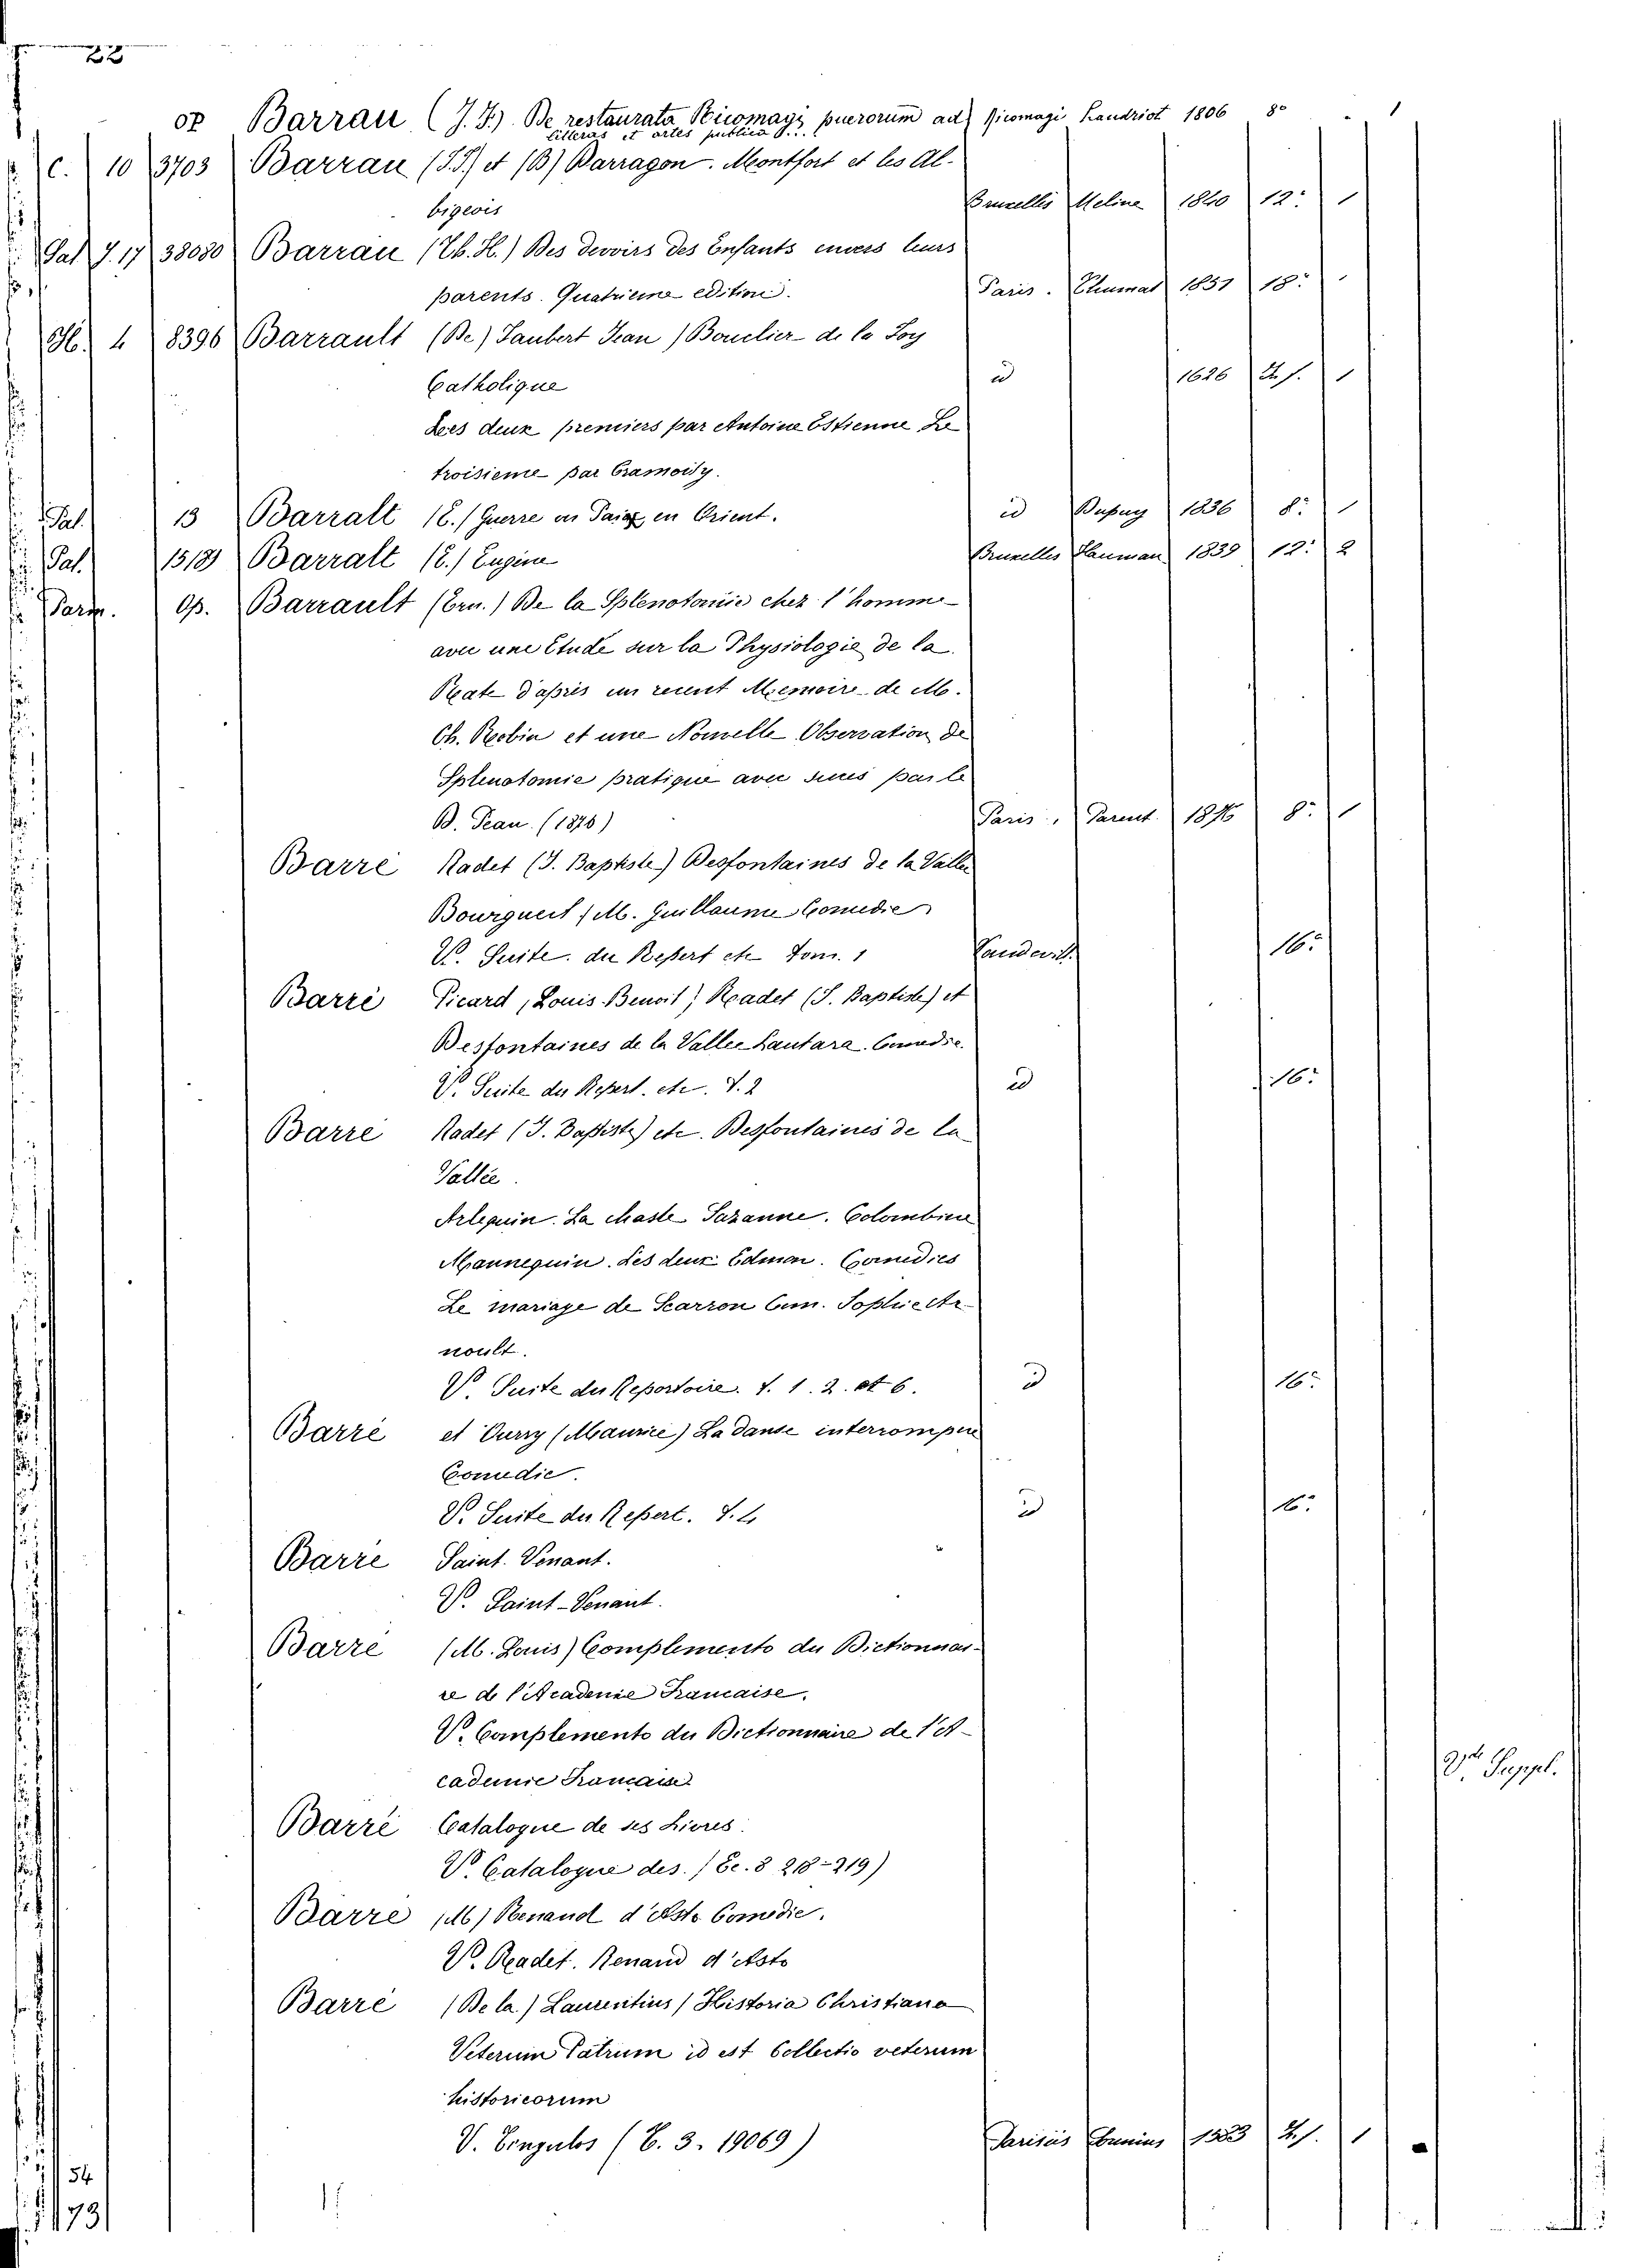 22
op Barrau (J. J.) De restaurata Nicomagi puerorum ad Nicomagi Landriot 1806 8º 1
litteras et artes publica
C. 10 3703 Barrau (J.J.) et (B) Darragon. Montfort et les Al-
bigeois Bruxelles Meline 1840 12º 1
Gal J. 17 38080 Barrau (Th. H.) Des devoirs des Enfants envers leurs
parents. Quatrieme edition. Paris. 1851 18º
H. 4 8396 Barrault (De) Jaubert Jean / Bouclier de la Foy
Catholique id 1626 2. f. 1
Les deux premiers par Antoine Estienne Le
troisieme par Cramoisy.
Pal. 13 Barralt (E.) Guerre ou Paix en Orient. id Dupuy 1836 8º 1
Pal. 15189 Barralt (E.) Eugine Bruxelles Hauman 1839 12º 2
Parm. Op. Barrault (Ern.) De la Splenotomie chez l'homme
avec une Etude sur la Physiologie de la
Rate d'apris un recent Memoire de M.
Ch. Robin et une Nouvelle Observation de
Splenotomie pratique avec par le
D. Pean (1876) Paris, Parent 1876 8º 1
Barré Radet (J. Baptiste) Desfontaines de la Vallee
Bourgueil / M. Guillaume Comedie
V. Suite du Repert etc Tom. 1 Vaudevill. 16º
Barré Picard, Louis Benoit; Radet (J. Baptiste) et
Desfontaines de la Vallee Lantara. Comedie.
V. Suite du Repert. etc. T. 2 id 16º
Barré Radet (J. Baptiste) etc. Desfontaines de la
Vallée.
Arlequin. La chaste Suzanne. Colombine
Mannequin. Les deux Edmon. Comedies
Le mariage de Scarron Com. Sophie Ar-
noult.
V. Suite du Repertoire. T. 1. 2. et 6. id 16º
Barré et Ourry (Maurice) La danse interrompue
Comedie.
V. Suite du Repert. T. 4 id 16º
Barre Saint. Venant.
V. Saint-Venant.
Barré (M. Louis) Complemento du Dictionnai-
re de l'Academie Francaise.
V. Complemento du Dictionnaire de l'A-
cademie Francaise Vº Suppl.
Barré Catalogue de ses Livres.
V. Catalogue des. / Ec. 8 218-219)
Barré (M) Renaud d'Asto Comedie.
V. Radet. Renaud d'Asto
Barré (De la) Laurentius / Historia Christiana
Veterum Patrum id est Collectio veterum
historicorum
V. Singulos (B. 3. 19069) Parisiis 1583 2. f. 1
54
173